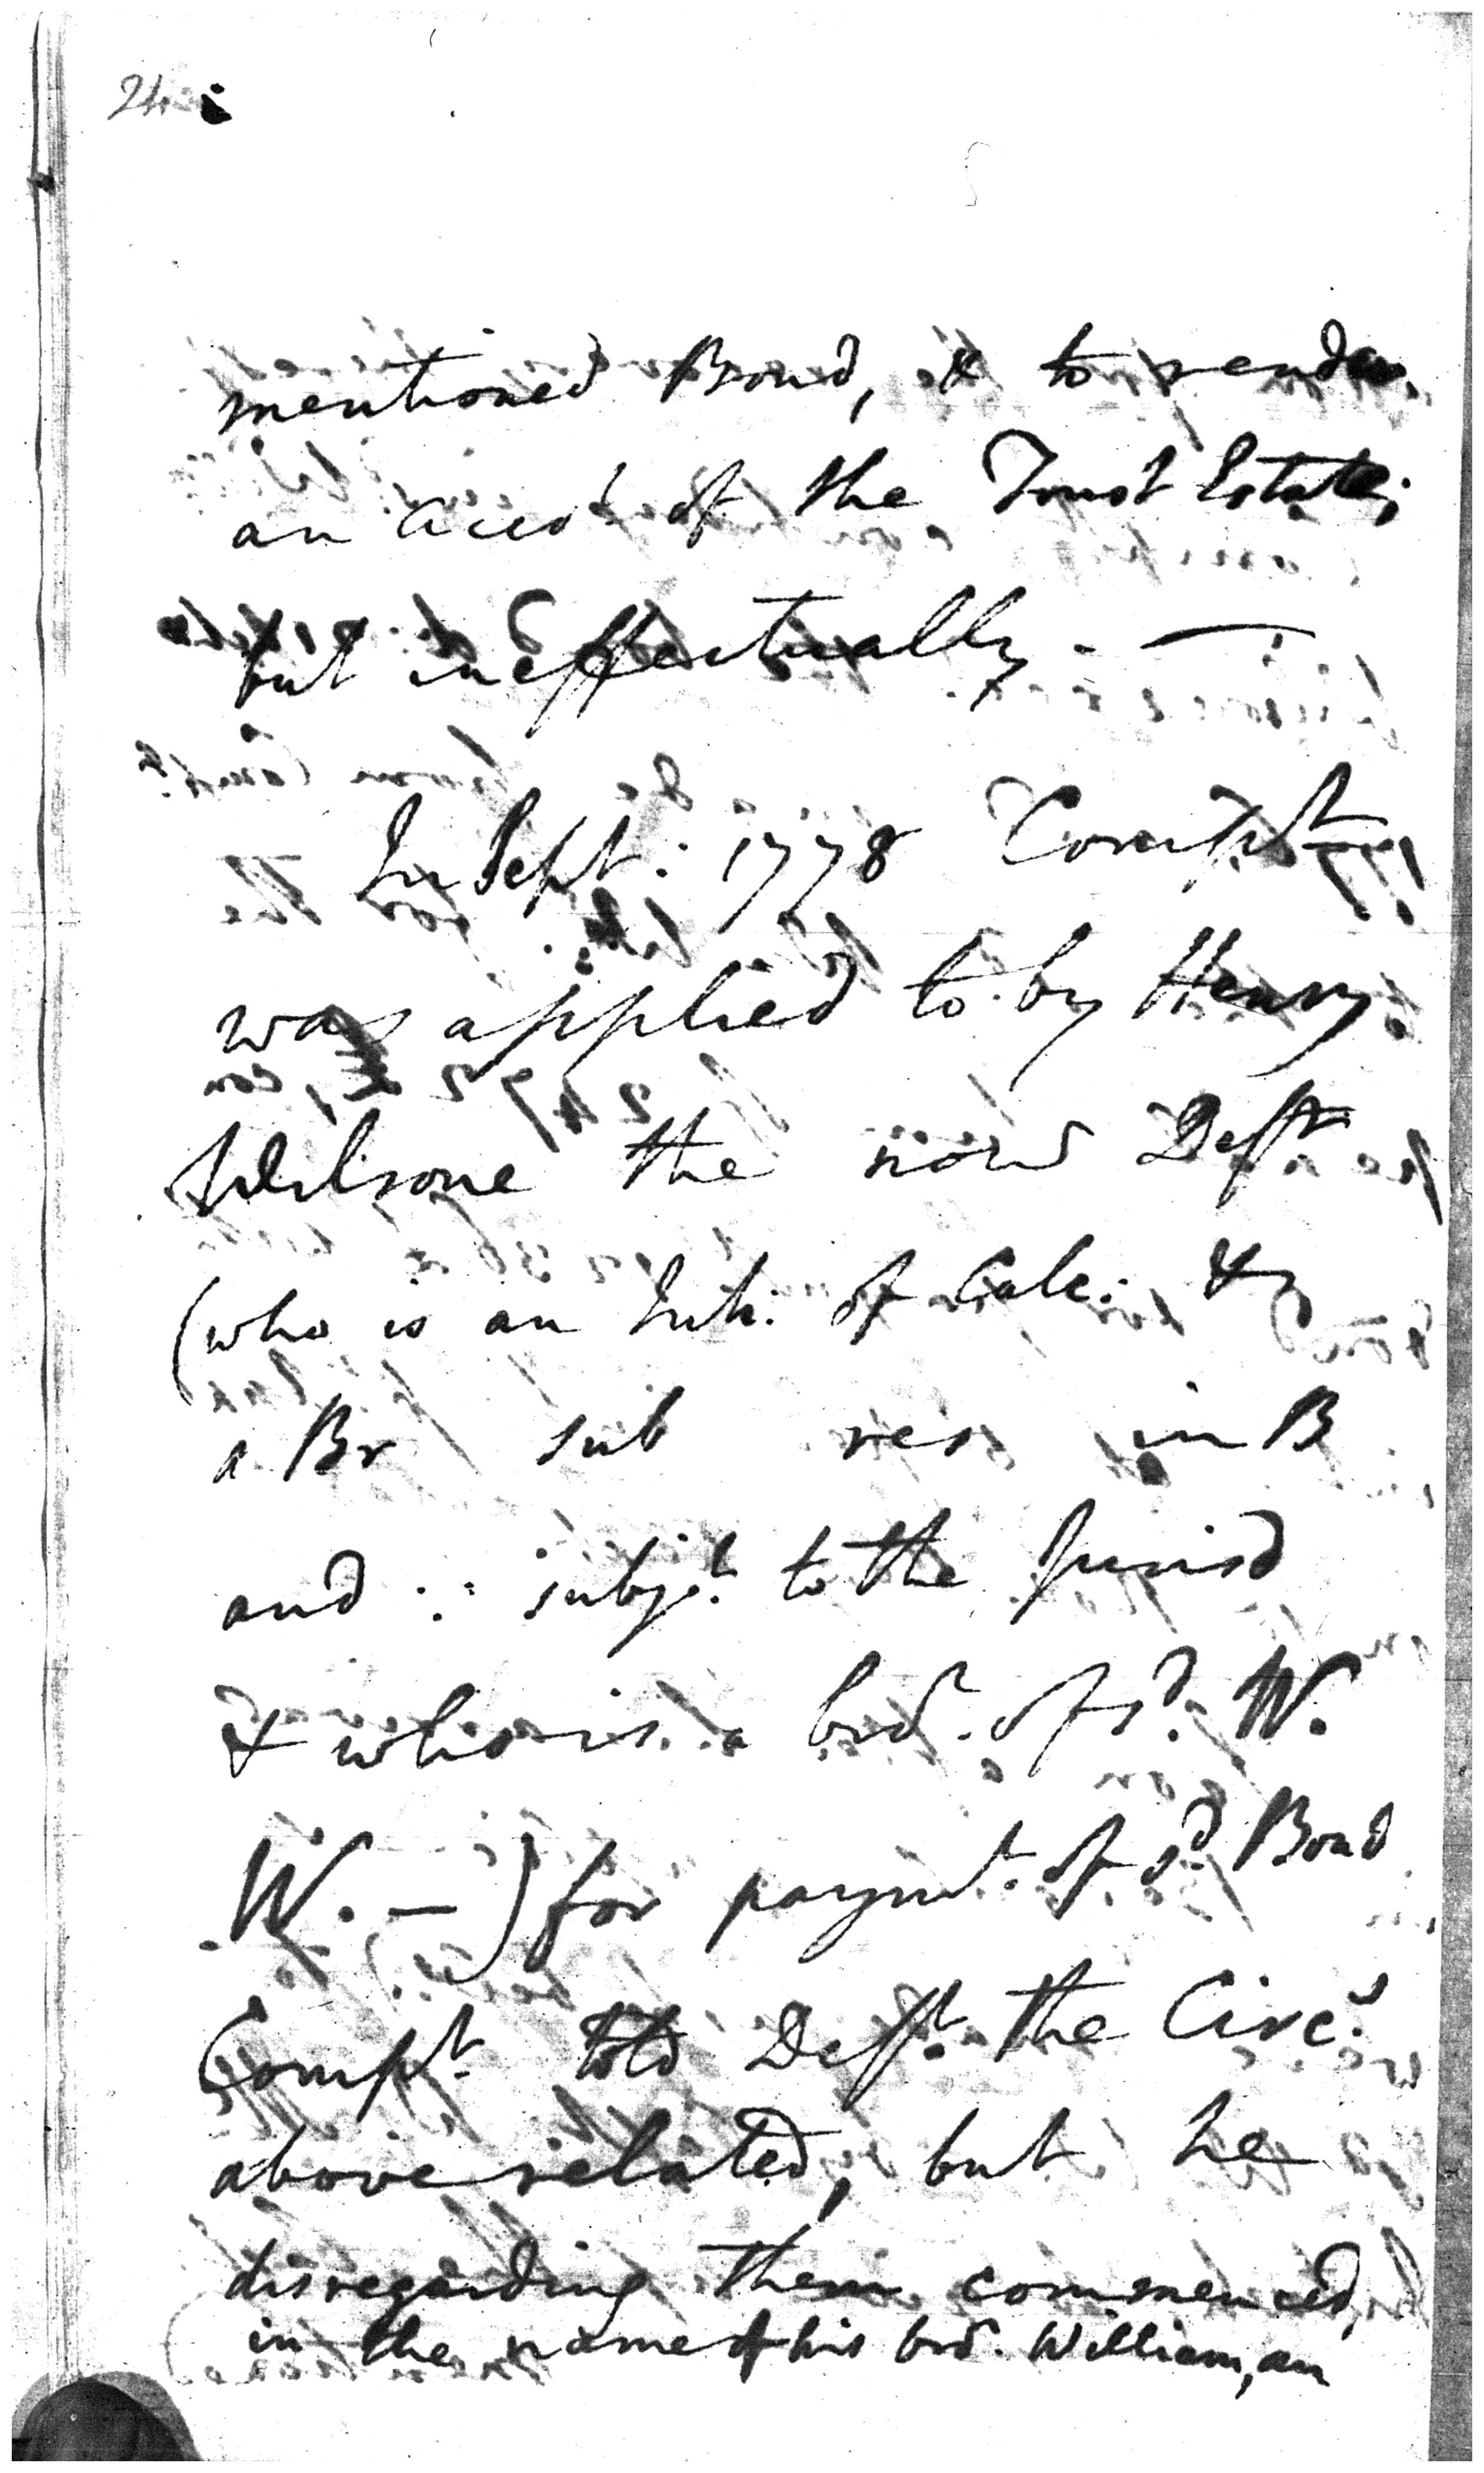 24
mentioned Bond, & to render
an accot. of the Trust Estate;
but ineffectually. —
In Sept: 1778 Compt
was applied to by Henry
Wilsone the now Deft
(who is an Inh: of Calc: &
a Br sub res in B
and ∴ subjt. to the Jurisd
& who is a bror. of sd. W.
W. —) for paymt. of sd. Bond
Compt. told Deft. the Circs.
above related, but he
disregarding them commenced,
in the name of his bror. William, an